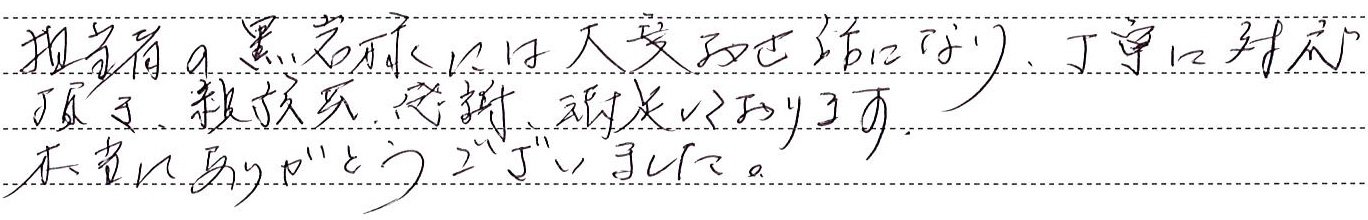 担当者の黒岩様には大変お世話になり、丁寧に対応
頂き、親族共、感謝、満足しております。
本当にありがとうございました。